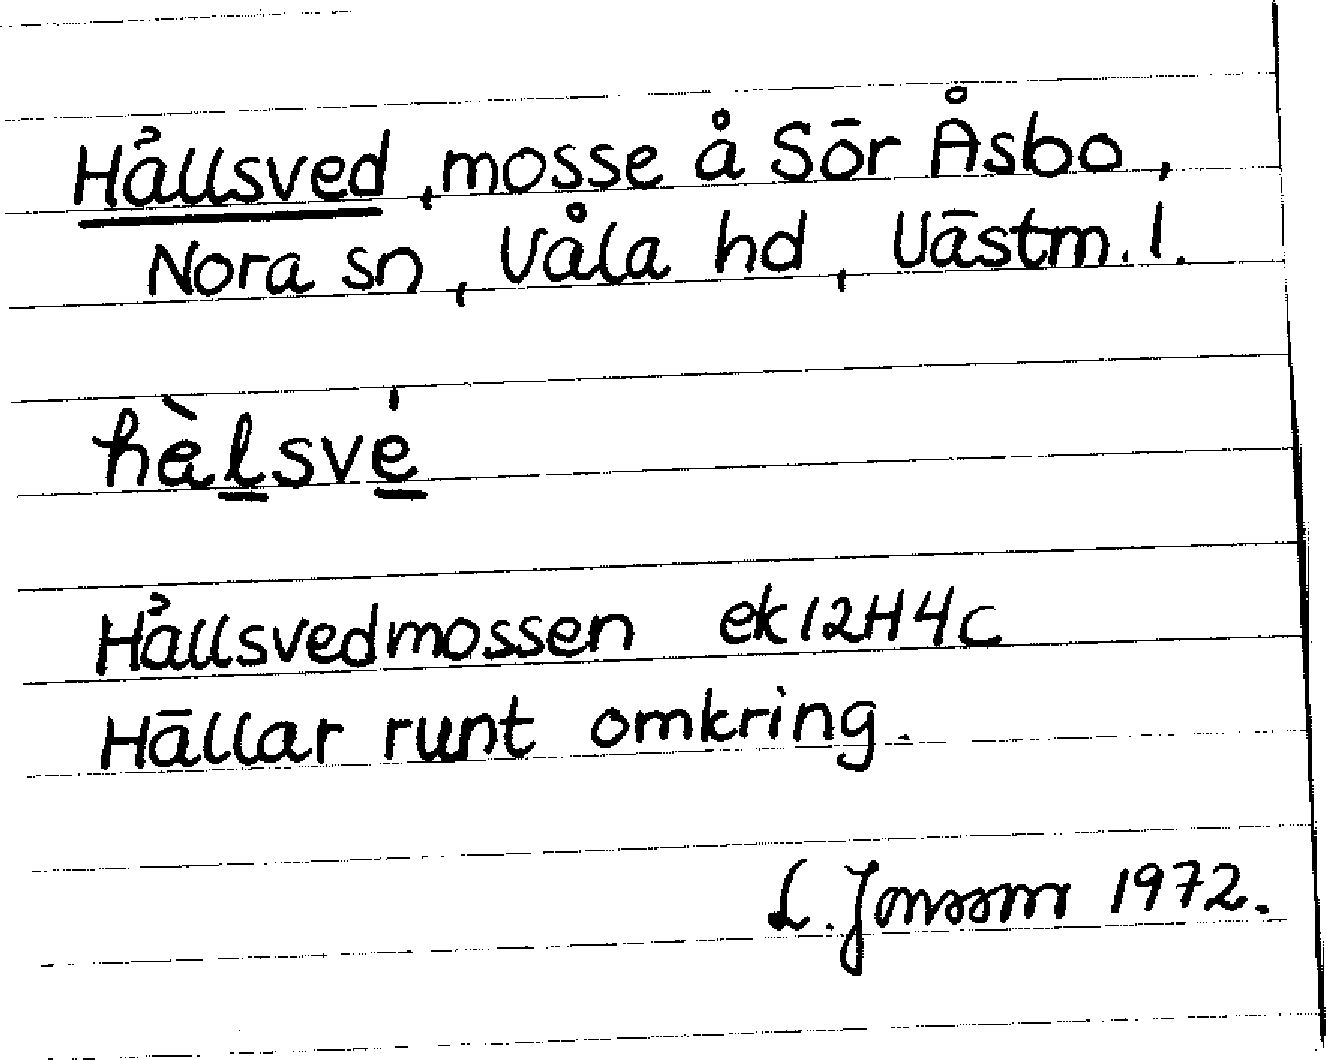 Hållsved, mosse å Sör Åsbo,
Nora sn, Våla hd, Västm. l.
hèlsvé
Hållsvedmossen ek 12H4c
Hällar runt omkring.
L. Jonsson 1972.